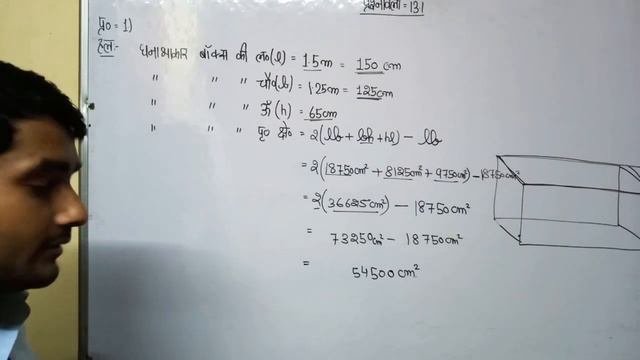 प्रश्नावली = 13.1
प्र० = 1)
हल:- घनाभाकार बॉक्स की ल०(l) = 1.5m = 150 cm
" " " चौ०(b) = 1.25m = 125cm
" " " ऊँ (h) = 65cm
" " " पृ० क्षे० = 2(lb + bh + hl) - lb
= 2(18750cm² + 8125cm² + 9750cm²) - 18750cm²
= 2(36625cm²) - 18750cm²
= 73250cm² - 18750cm²
= 54500cm²